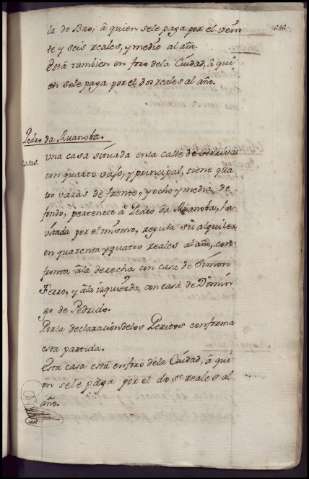 la de Bro, â quien sele paga por el vein
te y seis reales, y medio al año.
Está tambien en foro dela Ciudad, â qui
en sele paga por el dos reales al año.
Pedro da Ruanoba.
Casas.
Una casa situada enla calle de
con quatro vajo, y principal, tiene qua
tro varas de frente, y ocho y media de
fondo, perenece â Pedro da Ruanoba, ha
vitada por el mismo, regula su alquiler
en quarenta y quatro reales al año, con
fronta âla derecha con casa de Simon
Ferro, y âla izquierda con casa de Domin
go de Pedrido.
Porla declaracion delos Peritos conforma
esta partida.
Esta casa está enforo dela Ciudad, â qui
en sele paga por el dos reales al
año.